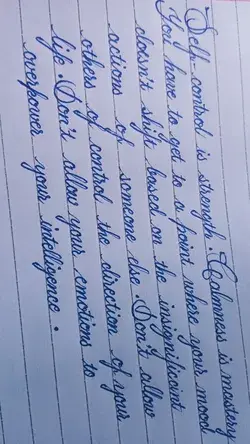 Self control is strength. Calmness is mastery
You have to get to a point where your mood
doesn't shift based on the insignificant
actions of someone else. Don't allow
others of control the direction of your
life. Don't allow your emotions to
overpower your intelligence.